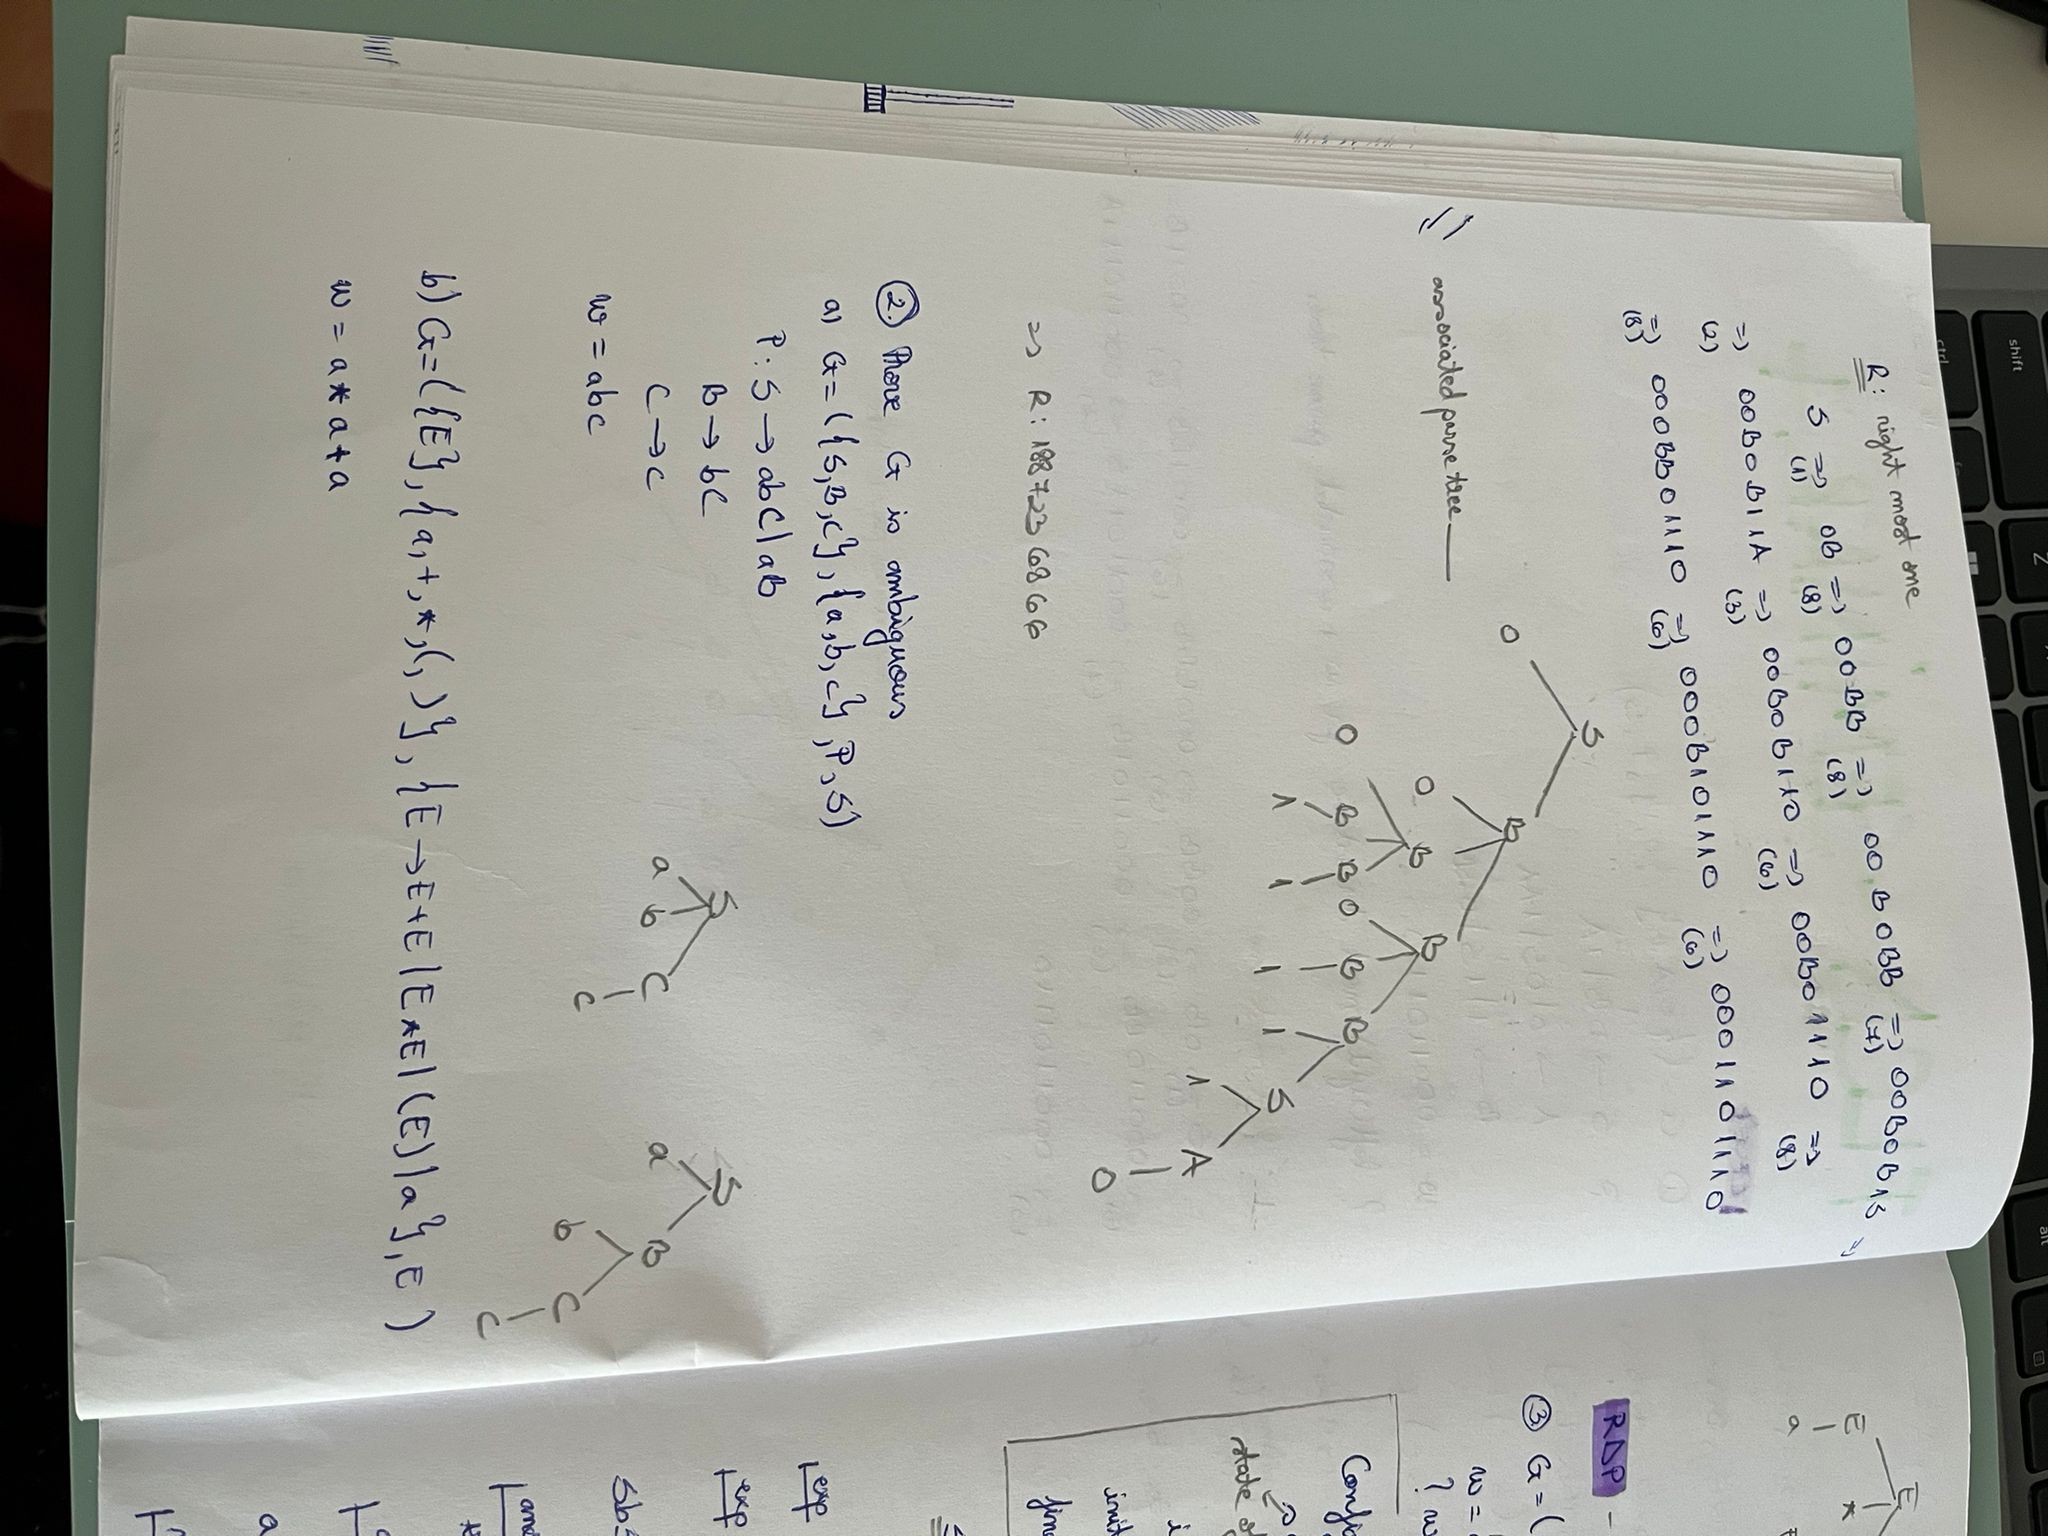 shift
Z
alt
ctrl
R: right most one
S => (1) 0B => (8) 00BB => (8) 00B0BB => (7) 00B0B1S =>
=> (2) 00B0B11A => (3) 00B0B110 => (6) 00B01110 => (8)
=> (8) 000BB01110 => (6) 000B101110 => (6) 0001101110
S
0 B
associated parse tree
0 B B
0 B B 0 B B
1 1 1 1 S
1 A
0
=> R: 1887236866
2. Prove G is ambiguous
a) G=({S,B,C}, {a,b,c}, P, S)
P: S → abC | aB
B → bC
C → c
w = abc
S
a b C
c
S
a B
b C
c
b) G=({E}, {a,+,*,(,)}, {E → E+E | E*E | (E) | a}, E )
w = a * a + a
E
E *
a
RDP -
3 G = (
w =
? w
state
exp
exp
SbS
a